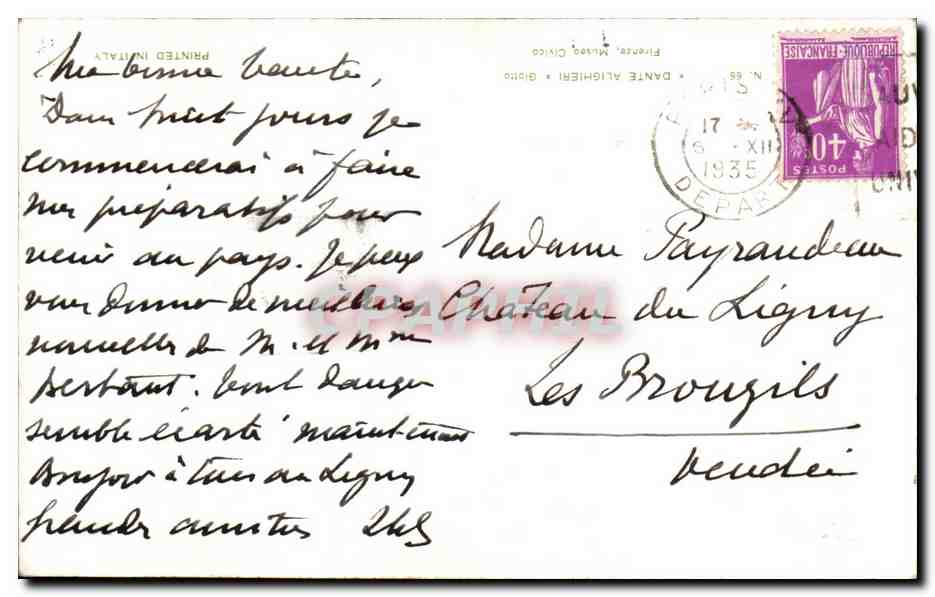 PRINTED IN ITALY
N. 66 DANTE ALIGHIERI * Giotto
Firenze, Museo Civico
Ma bonne
Dans huit jours je
commencerai à faire
mes préparatifs pour
venir au pays. Je peux
vous donner de meilleures
nouvelles de M. et Mme
. Tout danger
semble écarté maintenant
Bonjour à tous au Ligny
grandes amitiés
Madame Payraudeau
Château du Ligny
Les Brouzils
Vendée
17
6 -XII
1935
DEPART
REPUBLIQUE FRANÇAISE
POSTES
40c
AID
UNIV
CPAPHIL